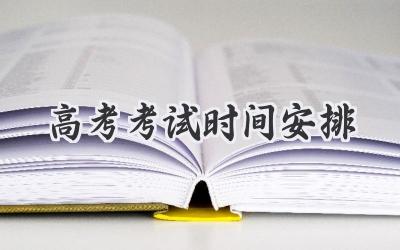 高考考试时间安排